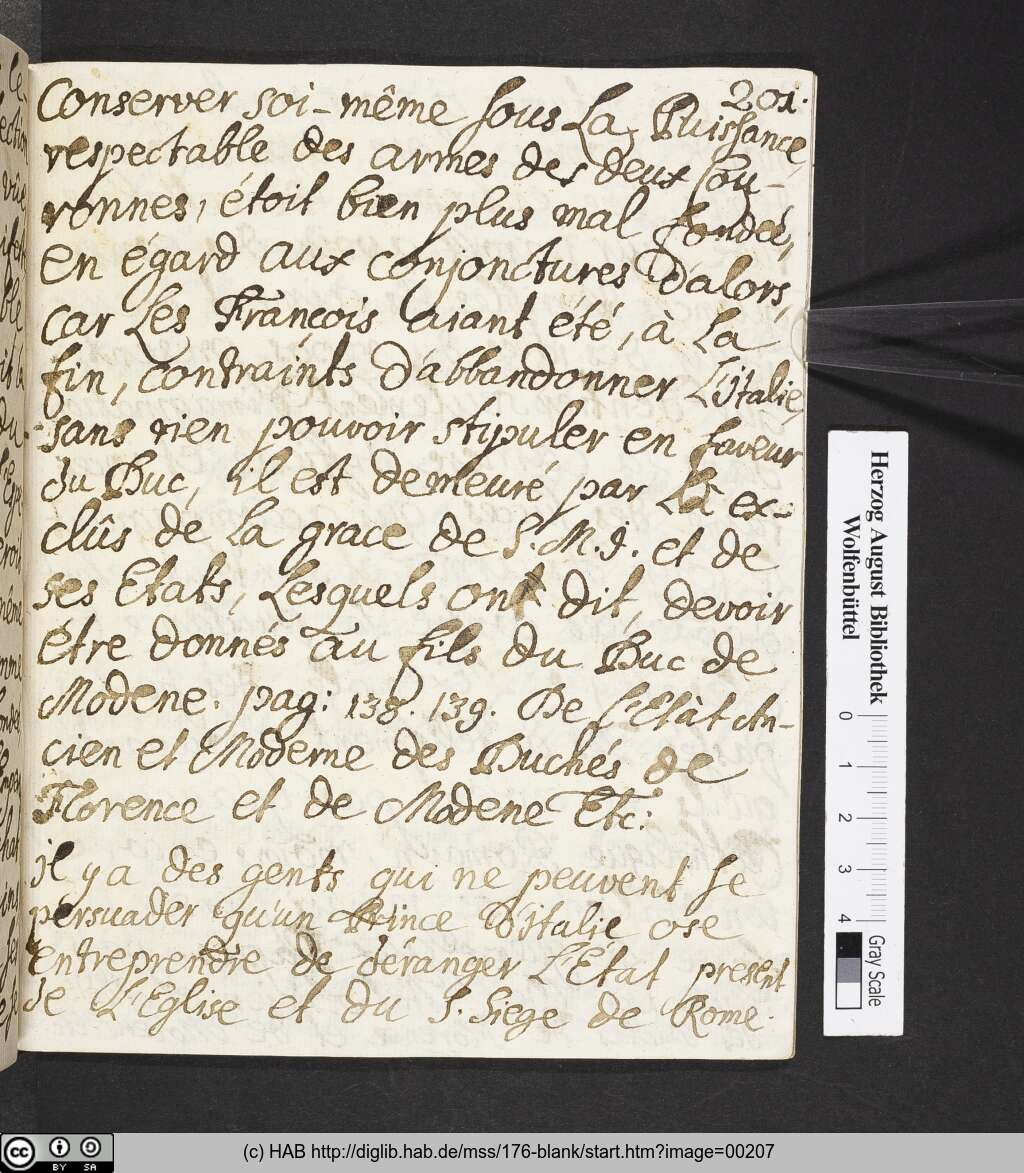 201.
Conserver soi-même sous La Puissance
respectable des armes des deux Cou-
ronnes, étoit bien plus mal fondée,
en égard aux conjonctures d'alors,
car Les François aiant été, à La
fin, contraints d'abbandonner L'Italie,
sans rien pouvoir stipuler en faveur
du Duc, il est demeuré par Là ex-
clûs de La grace de S. M. I. et de
ses Etats, Lesquels ont dit, devoir
être donnés au fils du Duc de
Modene. pag: 138. 139. De L'Etàt An-
cien et Moderne des Duchés de
Florence et de Modene Etc:
il y a des gents qui ne peuvent se
persuader qu'un Prince d'Italie ose
entreprendre de déranger L'État present
de L'Eglise et du S. Siege de Rome.
Herzog August Bibliothek
Wolfenbüttel
0 1 2 3 4
Gray Scale
cc BY SA
(c) HAB http://diglib.hab.de/mss/176-blank/start.htm?image=00207